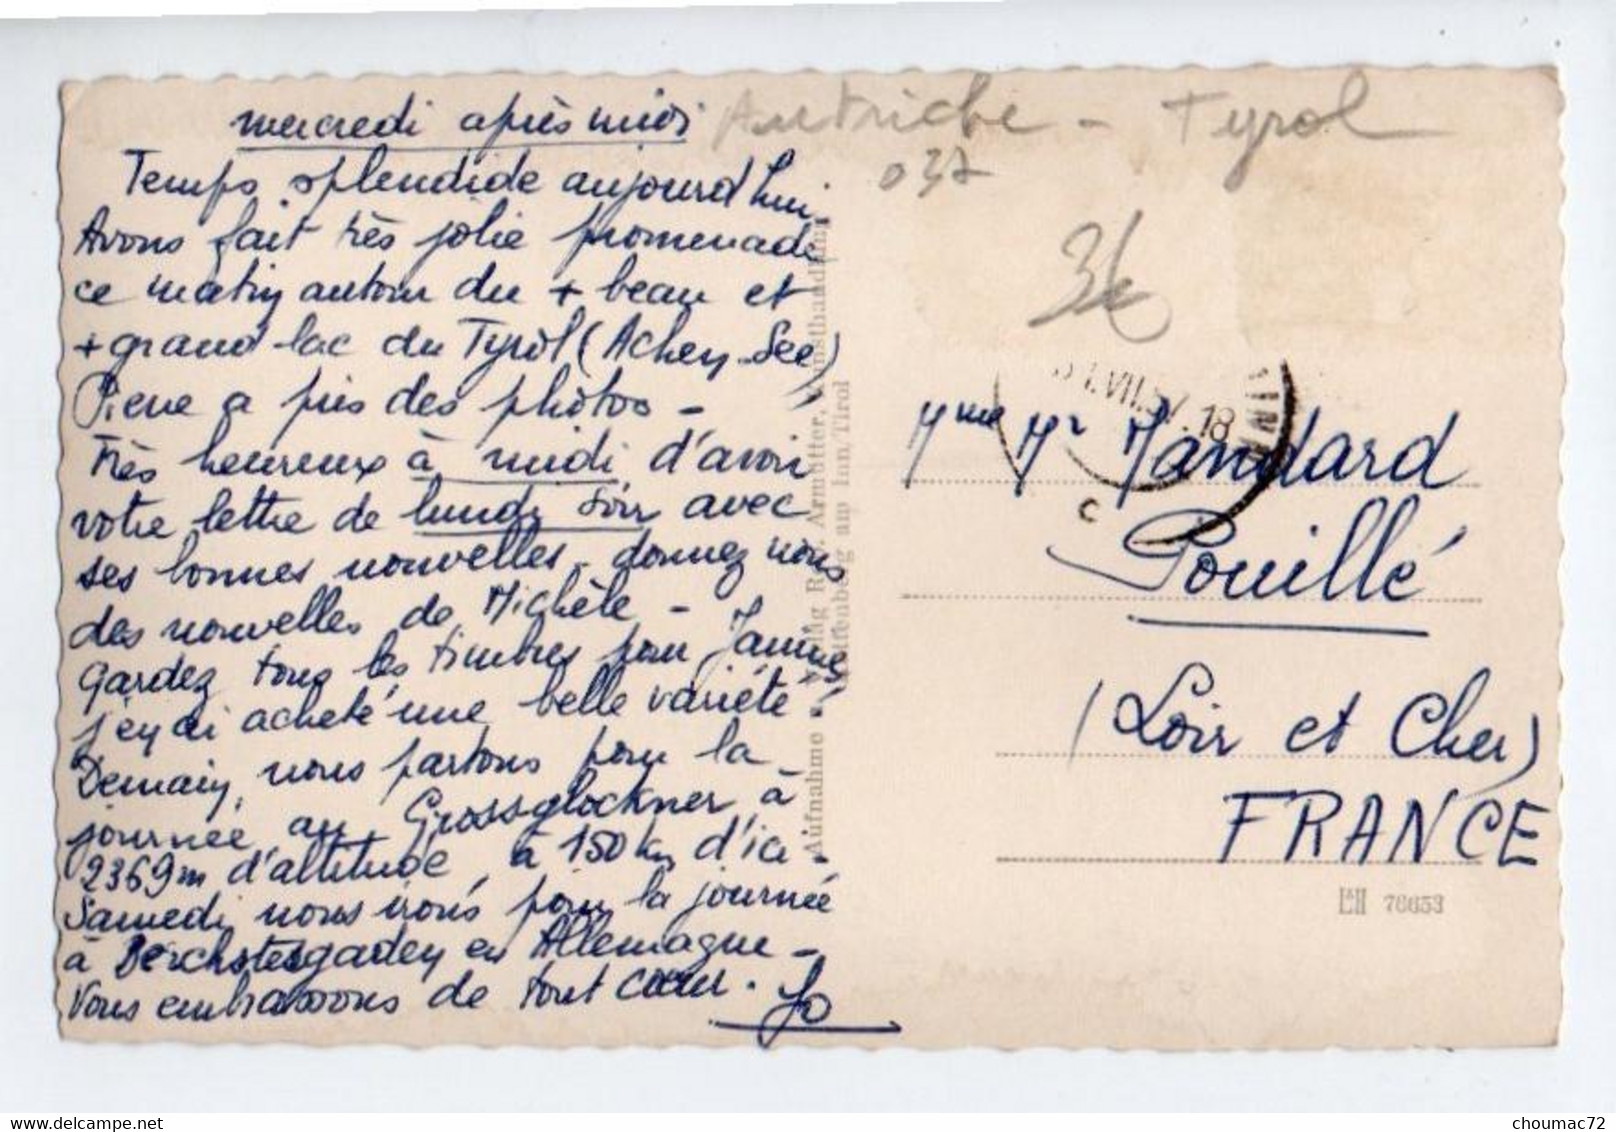 mercredi après midi
Temps splendide aujourd'hui.
Avons fait très jolie promenade
ce matin autour du + beau et
+ grand lac du Tyrol (Achen-See)
Pierre a pris des photos -
Très heureux à midi d'avoir
votre lettre de lundi soir avec
ses bonnes nouvelles - donnez nous
des nouvelles de Michèle -
Gardez tous les timbres pour Janine
j'en ai acheté une belle variété!
Demain, nous partons pour la
journée au Grossglockner à
2369m d'altitude, à 150 km d'ici -
Samedi nous irons pour la journée
à Berchstesgaden en Allemagne -
Vous embrassons de tout cœur. Jo
Aufnahme Verlag Armütter, Kunsthandlung
am Inn/Tirol
Autriche - Tyrol
037
3€
VII.57.18
c
Mme Mr Mandard
Pouillé
(Loir et Cher)
FRANCE
76653
choumac72